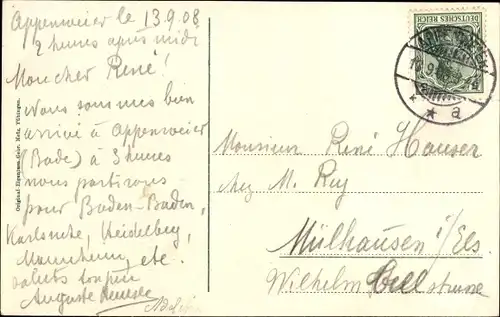 Appenweier le 13.9.08
2 heures après midi
Mon cher René!
Nous sommes bien
arrivé à Appenweier
(Bade) à 3 heures
nous partirons
pour Baden-Baden,
Karlsruhe, Heidelberg,
Mannheim, etc.
saluts ton
Auguste
Original-Eigentum Gebr. Metz, Tübingen.
DEUTSCHES REICH
a
Monsieur René Hauser
chez M. Rey
Mülhausen i/Els.
Wilhelm strasse